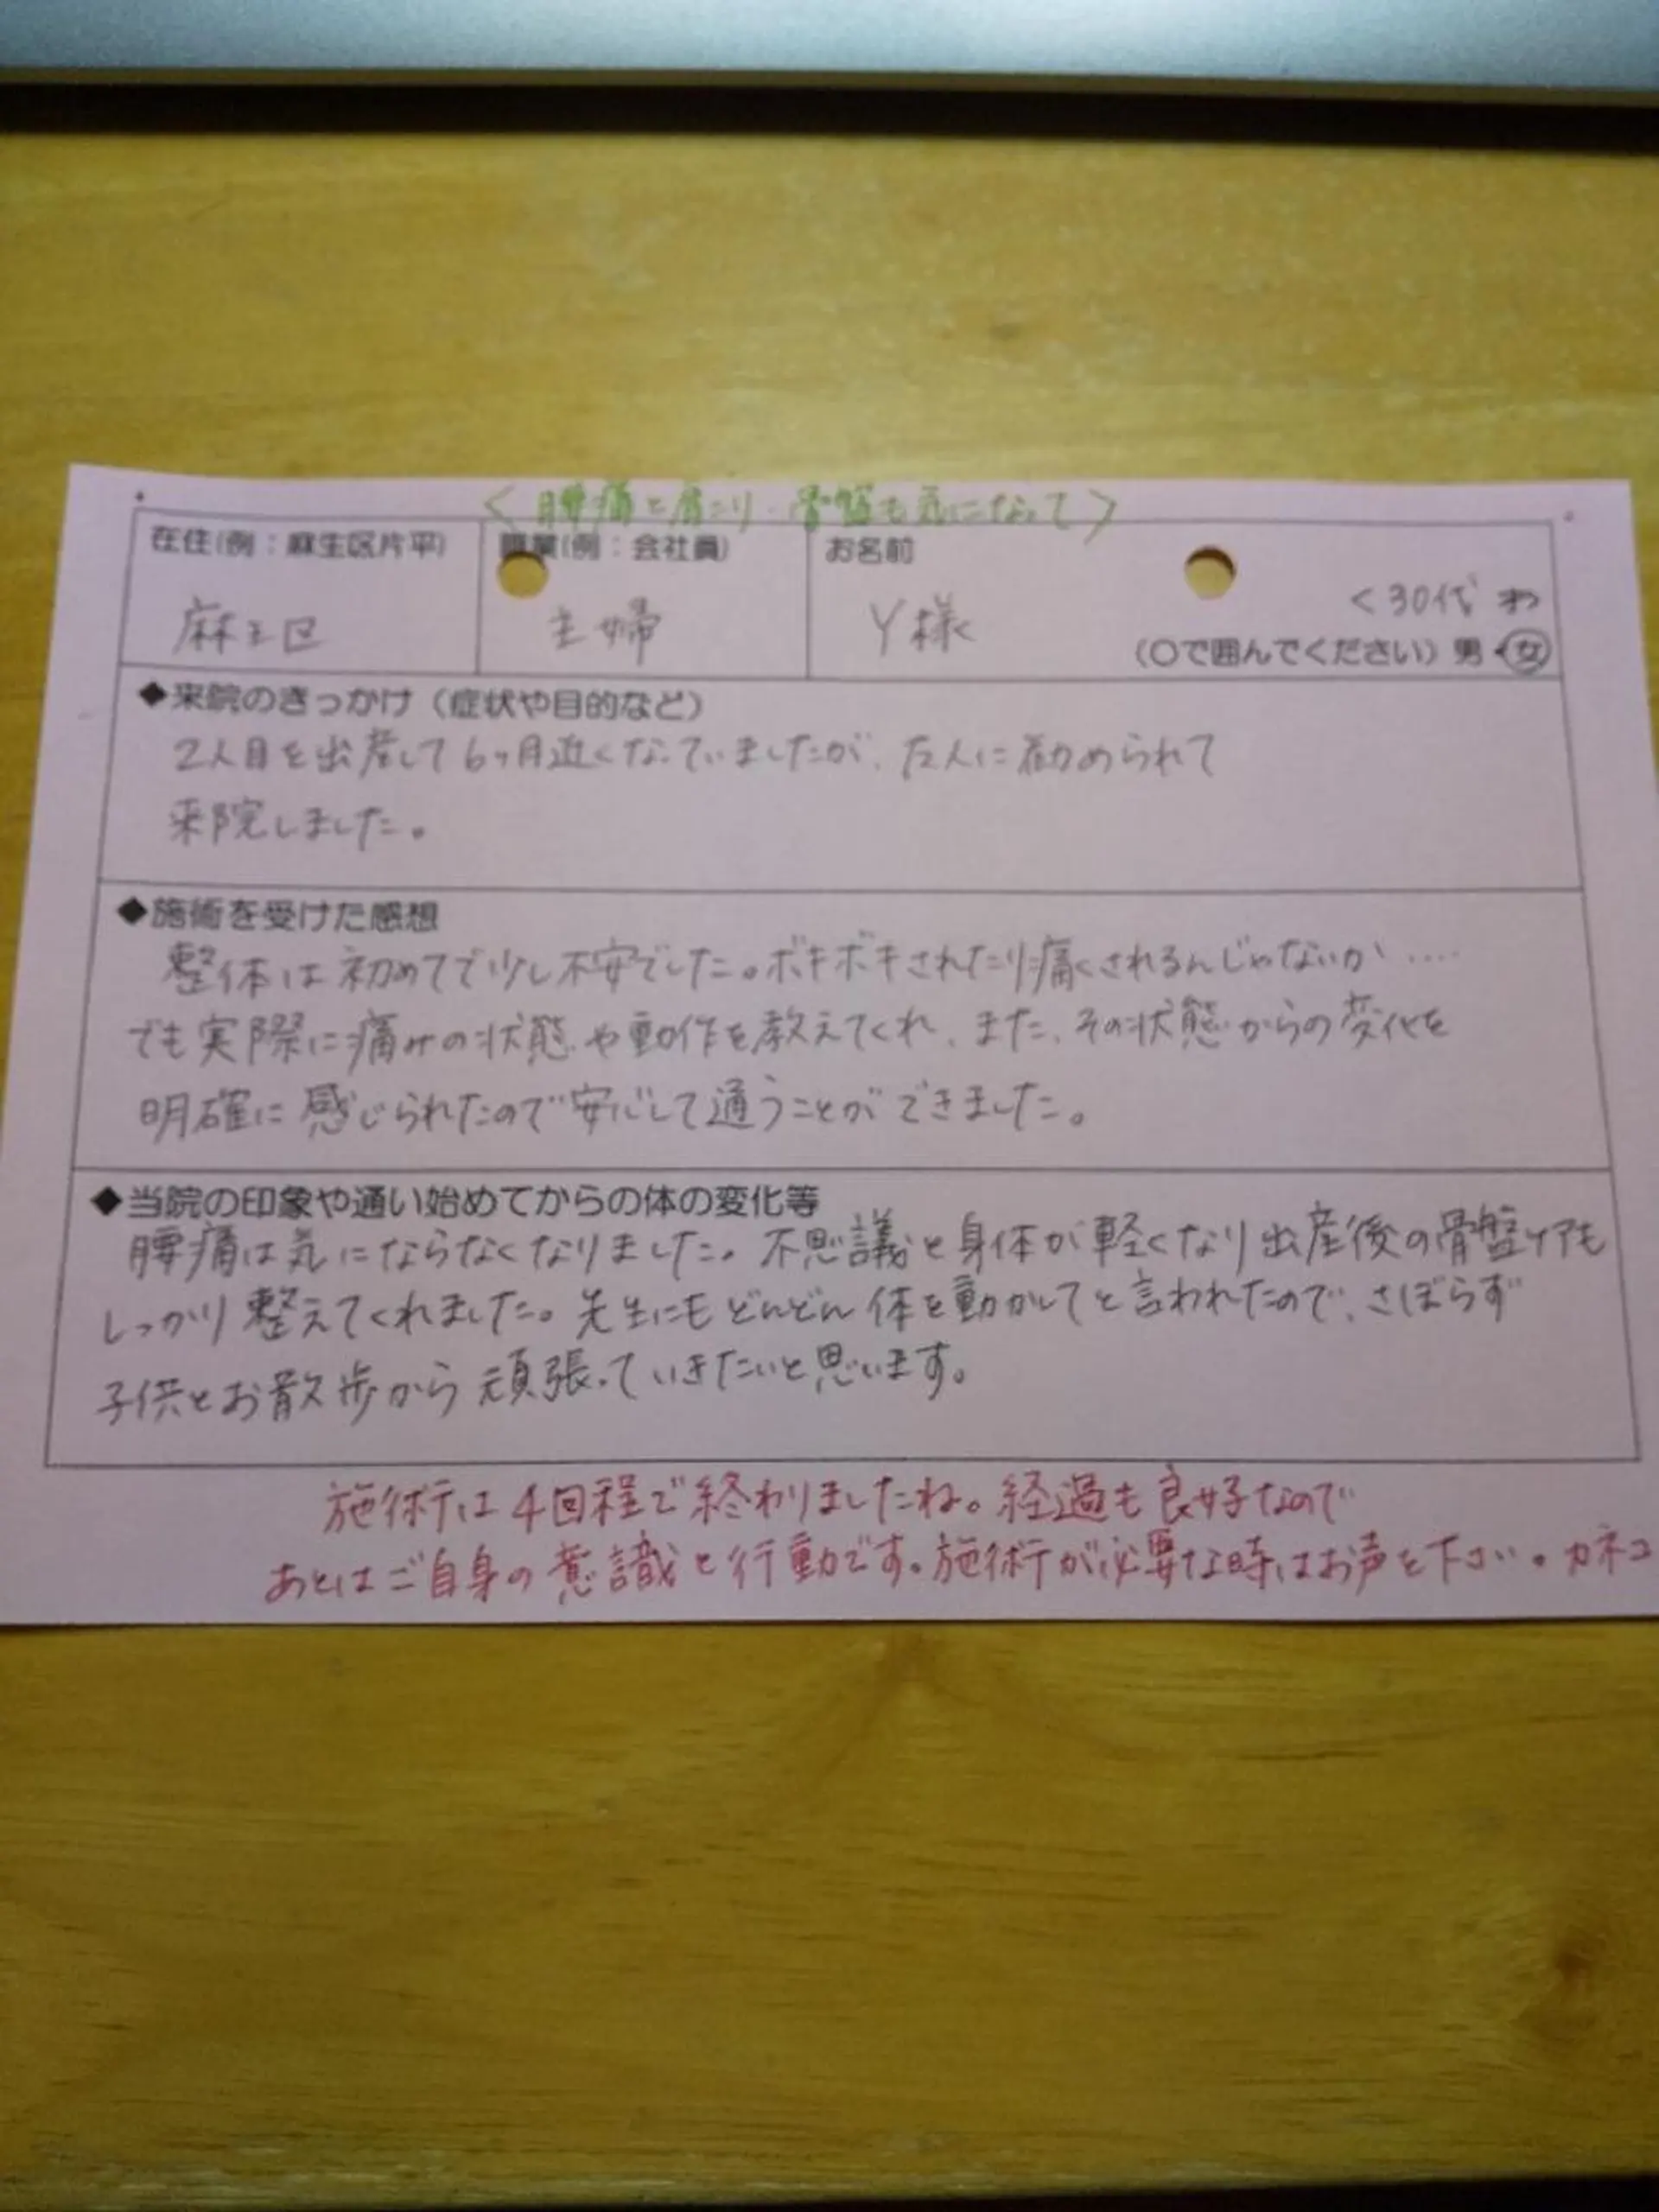 <腰痛と肩こり・骨盤も気になって>
在住(例：麻生区片平) 職業(例：会社員) お名前
<30代
麻生区 主婦 Y様
(○で囲んでください) 男・女
◆来院のきっかけ（症状や目的など）
2人目を出産して6ヶ月近くなっていましたが、友人に勧められて
来院しました。
◆施術を受けた感想
整体は初めてで少し不安でした。ボキボキされたり痛くされるんじゃないか‥‥
でも実際に痛みの状態や動作を教えてくれ、また、その状態からの変化を
明確に感じられたので安心して通うことができました。
◆当院の印象や通い始めてからの体の変化等
腰痛は気にならなくなりました。不思議と身体が軽くなり出産後の骨盤ケアも
しっかり整えてくれました。先生にもどんどん体を動かしてと言われたので、さぼらず
子供とお散歩から頑張っていきたいと思います。
施術は4回程で終わりましたね。経過も良好なので
あとはご自身の意識と行動です。施術が必要な時はお声を下さい。カネコ